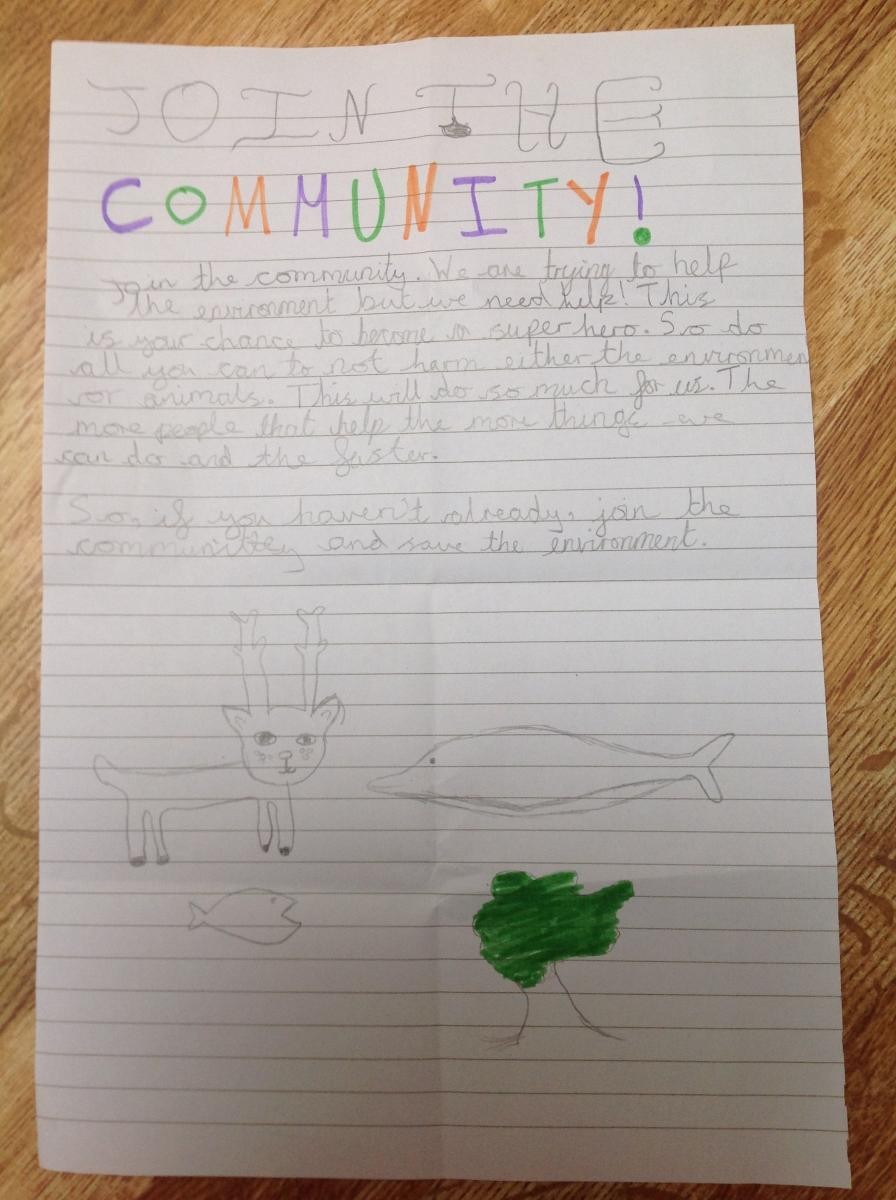 JOIN THE
COMMUNITY!
Join the community. We are trying to help
the environment but we need help! This
is your chance to become a superhero. So do
all you can to not harm either the environmen
or animals. This will do so much for us. The
more people that help the more things we
can do and the faster.
So, if you haven't already, join the
communittey and save the environment.